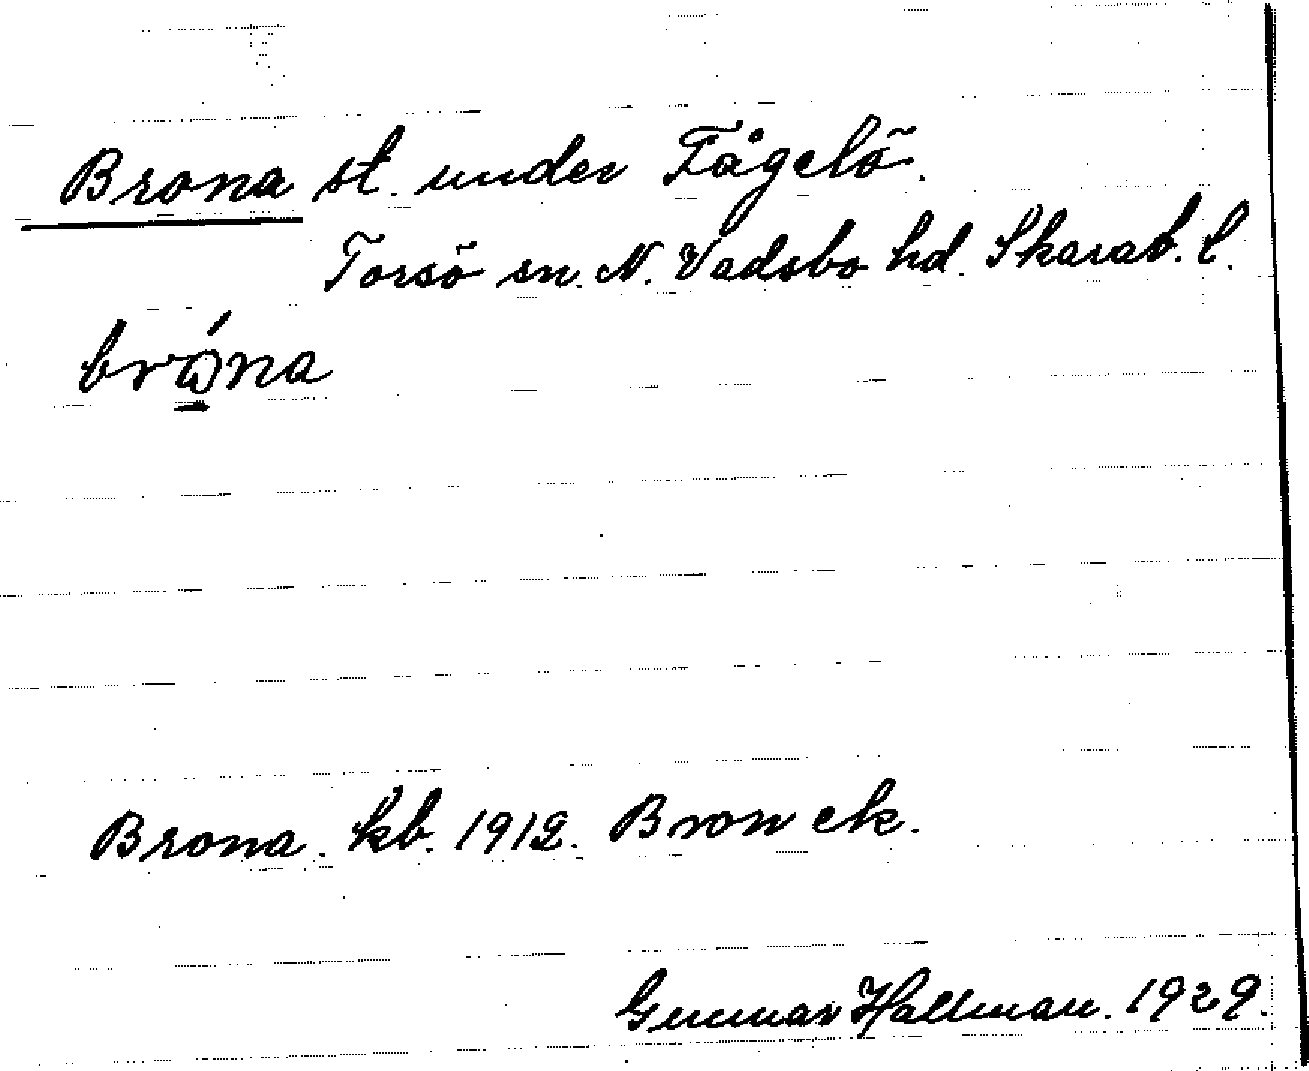 Brona st. under Fågelö.
Torsö sn. N. Vadsbo hd. Skarab. l.
brǫ́na
Brona. kb. 1912. Bron ek.
Gunnar Hallman. 1929.